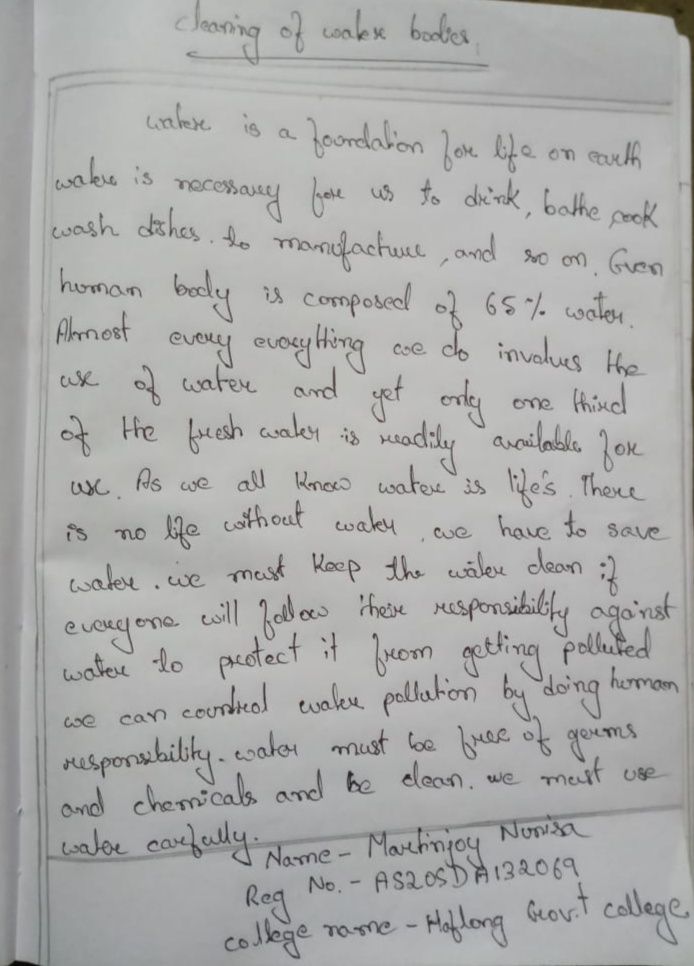 Cleaning of water bodies.
Water is a foundation for life on earth
water is necessary for us to drink, bathe, cook
wash dishes. to manufacture, and so on. Even
human body is composed of 65% water.
Almost every everything we do involves the
use of water and yet only one third
of the fresh water is readily available for
use. As we all know water is life's. There
is no life without water, we have to save
water. we must keep the water clean if
everyone will follow their responsibility against
water to protect it from getting polluted
we can countrol water pollution by doing human
responsibility. water must be free of germs
and chemicals and be clean. we must use
water carfully.
Name - Martinjoy Nunisa
Reg No. - AS20SDA132069
college name - Haflong Govt college